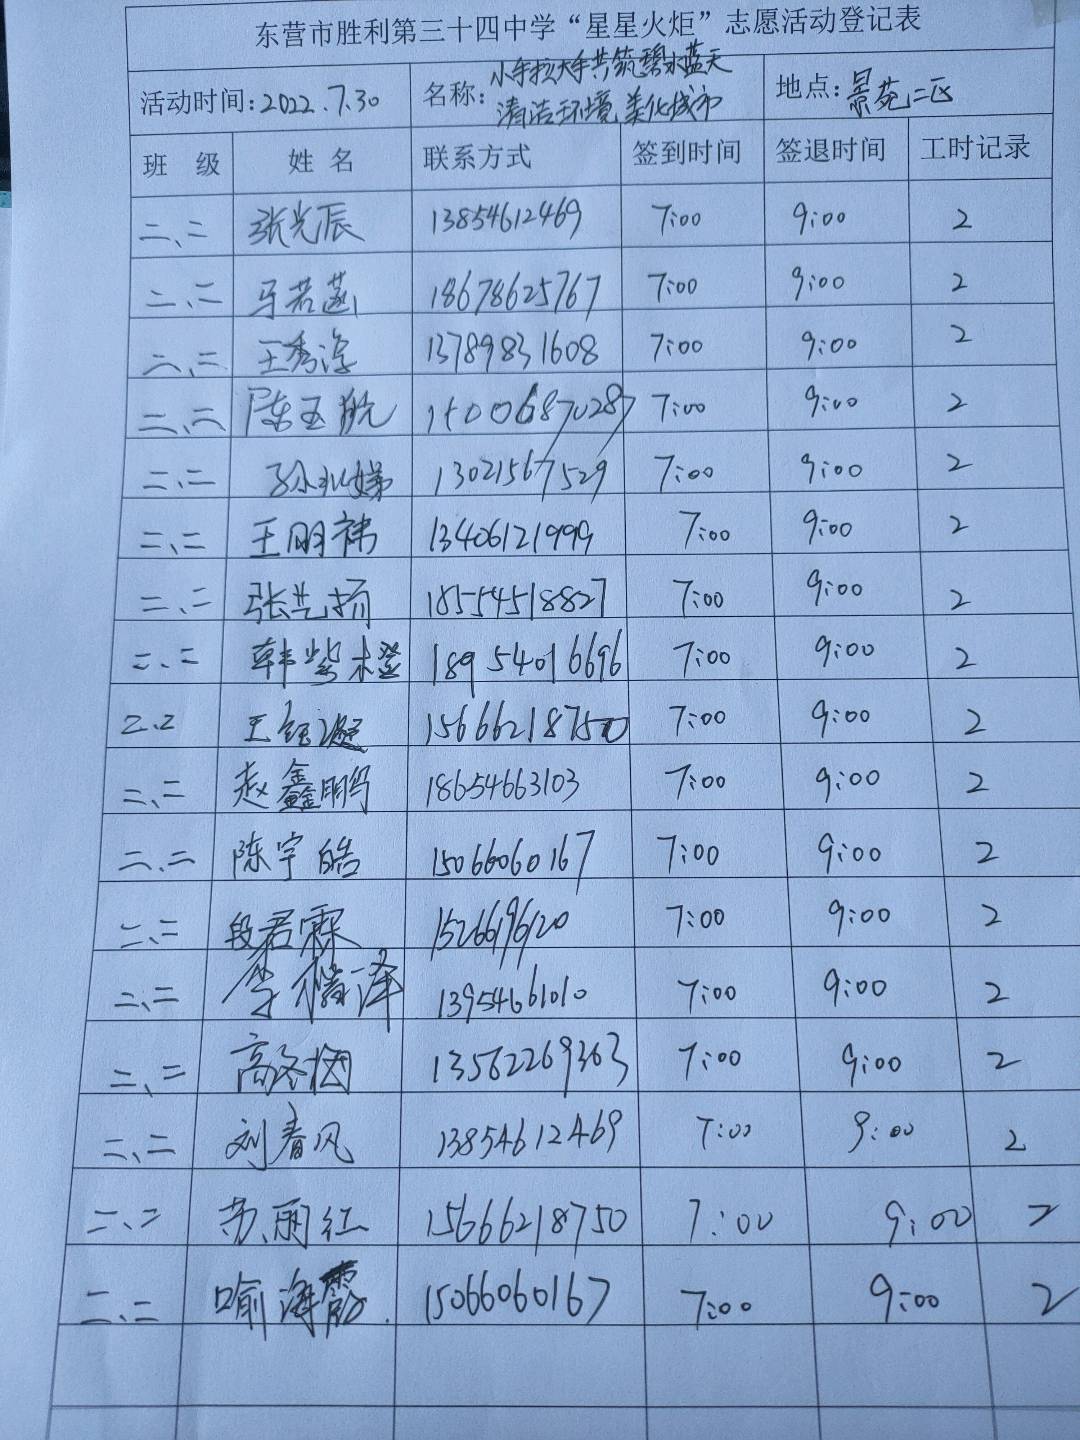 东营市胜利第三十四中学“星星火炬”志愿活动登记表
活动时间:2022.7.30 名称: 小手拉大手共筑碧水蓝天 清洁环境 美化城市 地点:景苑二区
班 级 姓 名 联系方式 签到时间 签退时间 工时记录
二、二 张光辰 13854612469 7:00 9:00 2
二、二 马若菡 18678625767 7:00 9:00 2
二、二 王秀淳 13789831608 7:00 9:00 2
二、二 陈玉航 15006870287 7:00 9:00 2
二、二 13021567529 7:00 9:00 2
二、二 王朋祎 13406121999 7:00 9:00 2
二、二 张艺扬 18554518827 7:00 9:00 2
二、二 韩紫橙 18954016696 7:00 9:00 2
2.2 王钰湿 15666218750 7:00 9:00 2
二、二 赵鑫鹏 18654663103 7:00 9:00 2
二、二 陈宇皓 15066060167 7:00 9:00 2
二、二 段君霖 15266196120 7:00 9:00 2
二、二 李楷泽 13954661010 7:00 9:00 2
二、二 高冬烟 13562269363 7:00 9:00 2
二、二 刘春风 13854612469 7:00 9:00 2
二、二 苏丽红 15666218750 7:00 9:00 2
二、二 喻海霞. 15066060167 7:00 9:00 2